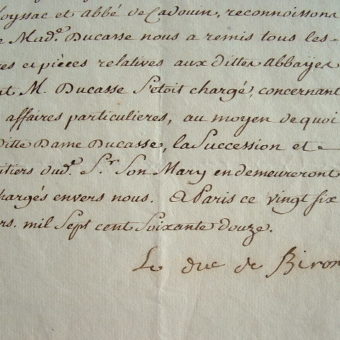 oyssac et abbé de Cadouin, reconnoissons
e Mad.e Ducasse nous a remis tous les
res et pièces relatives aux dittes Abbayes
nt M. Ducasse s'etoit chargé, concernant
affaires particulieres, au moyen de quoi
ditte Dame Ducasse, la Succession et
itiers dud. S.r Son Mary en demeureront
chargés envers nous. A Paris ce vingt six
ars. mil Sept cent Soixante douze.
Le duc de Biron